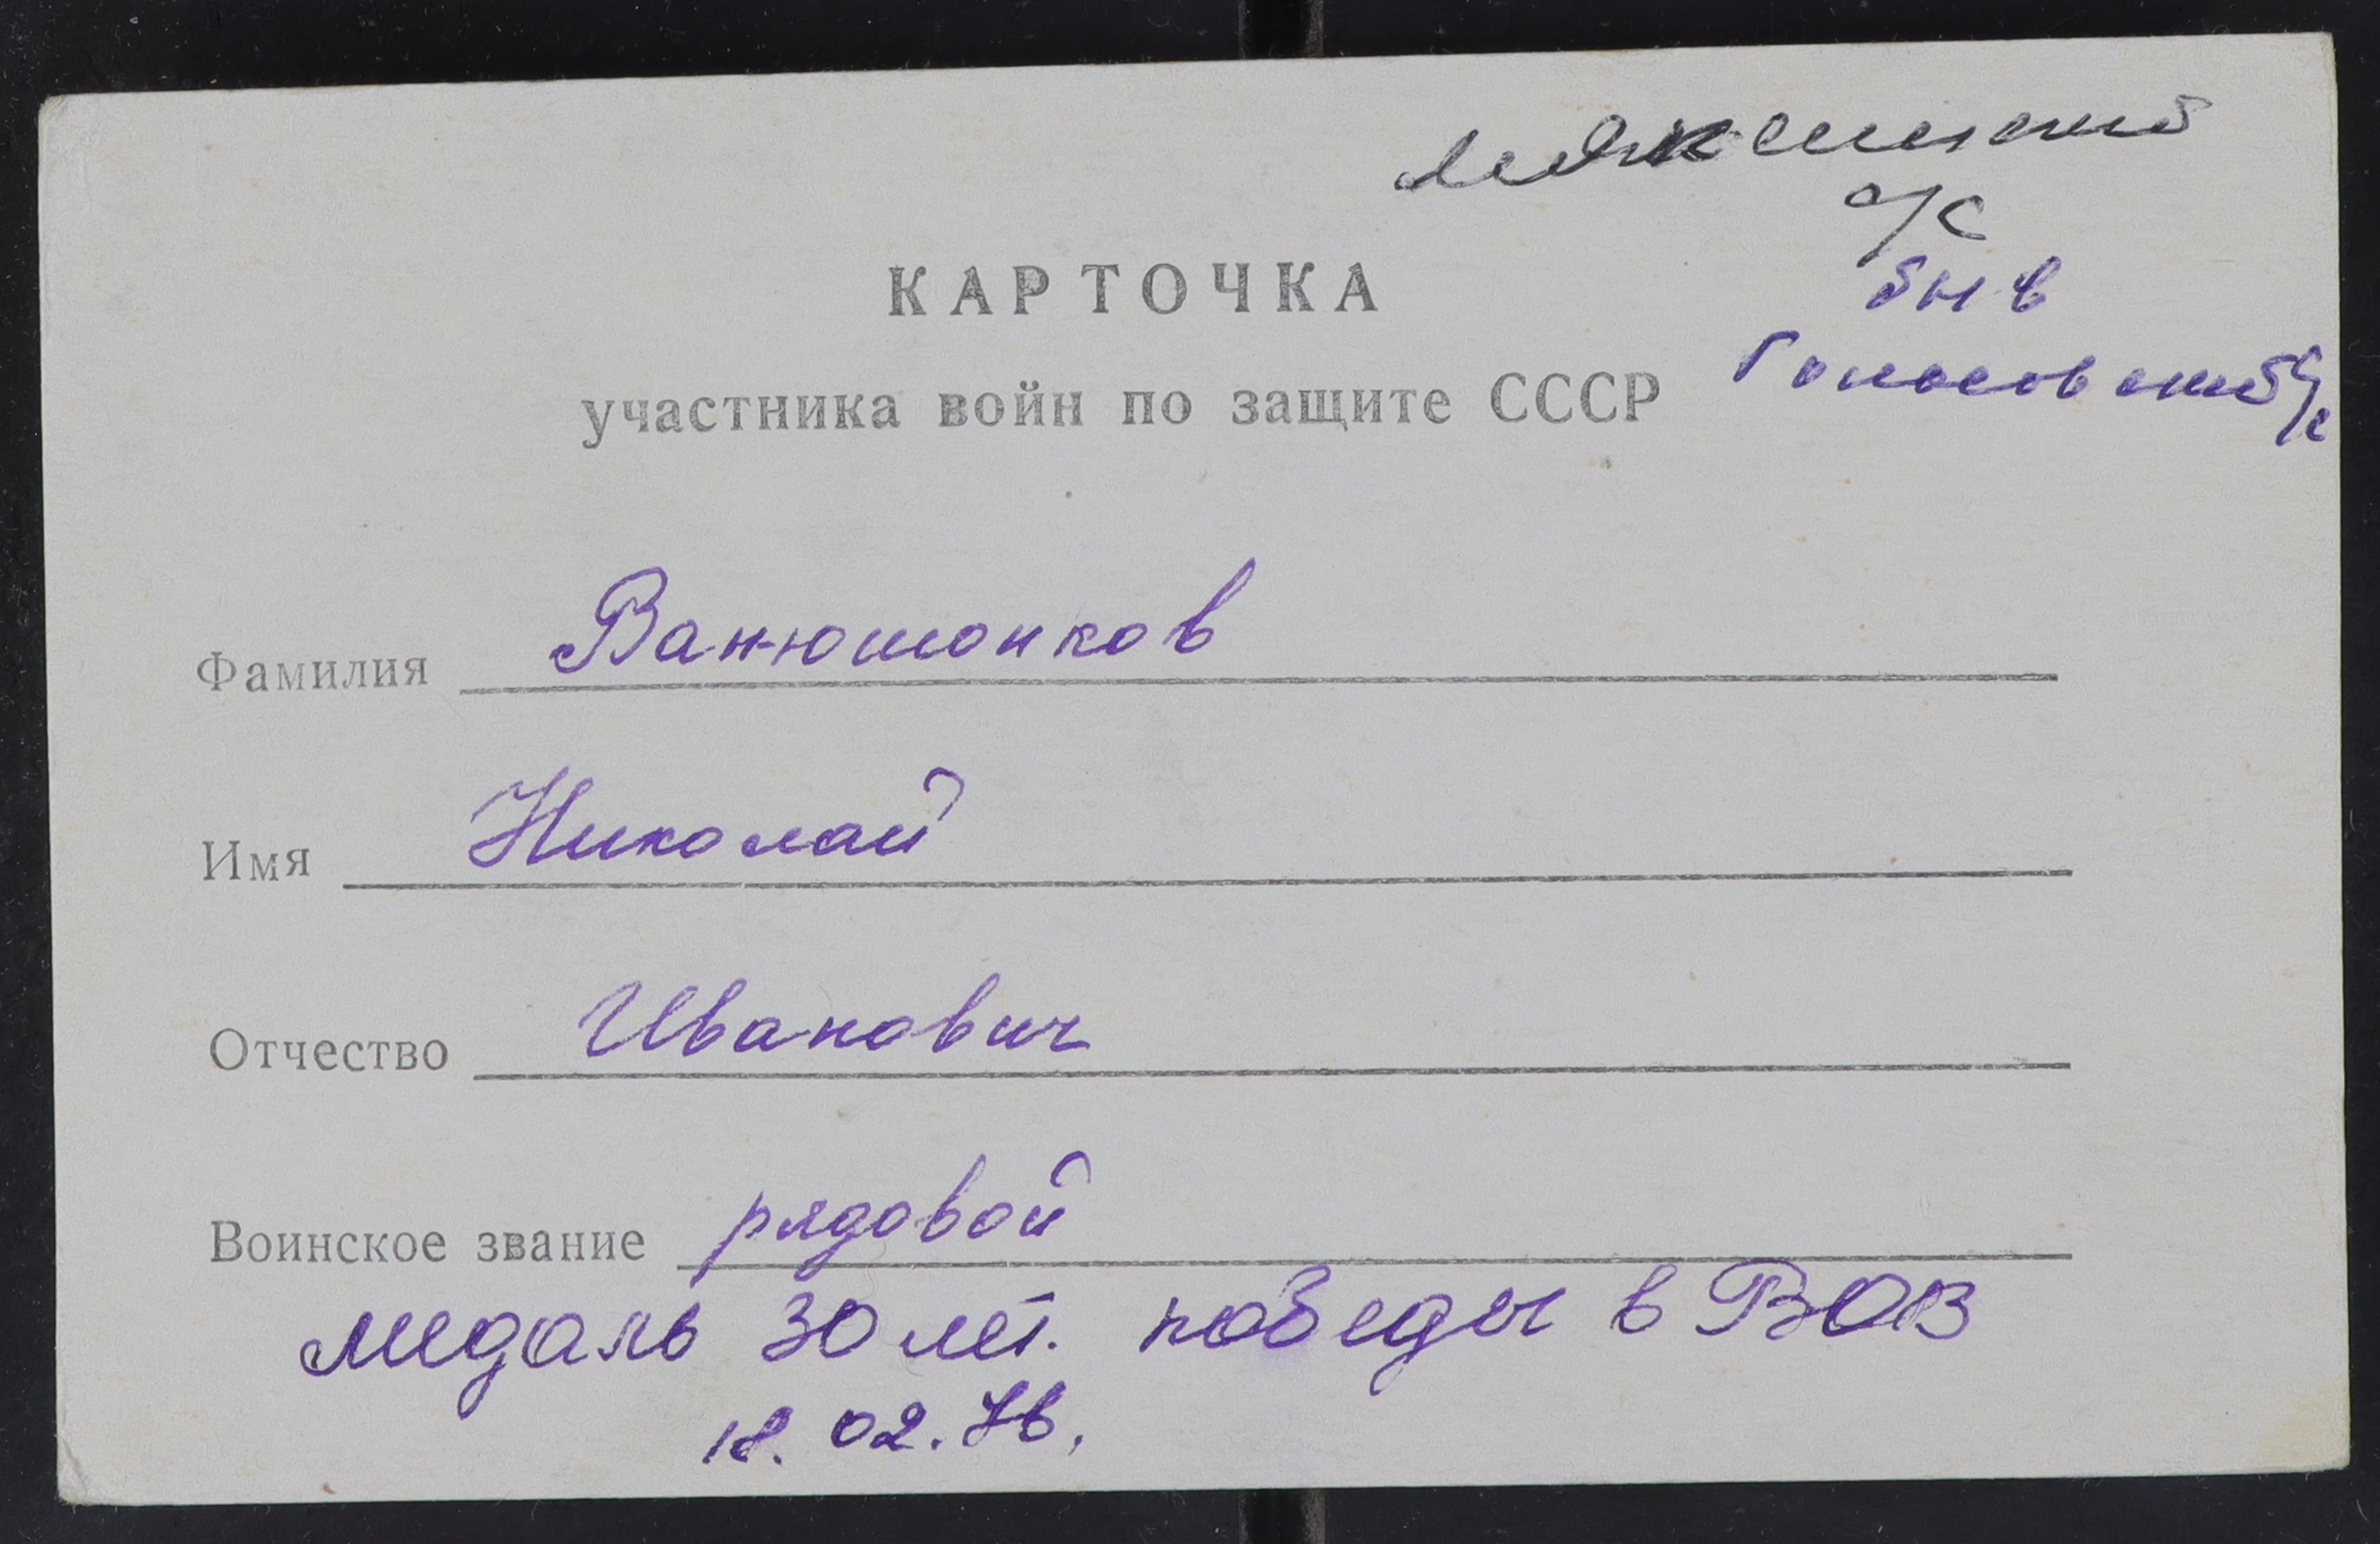 Мякшинский
с/с
быв
Голосовский с/с
КАРТОЧКА
участника войн по защите СССР
Фамилия Ванюшонков
Имя Николай
Отчество Иванович
Воинское звание рядовой
медаль 30 лет. победы в ВОВ
18. 02. 76.